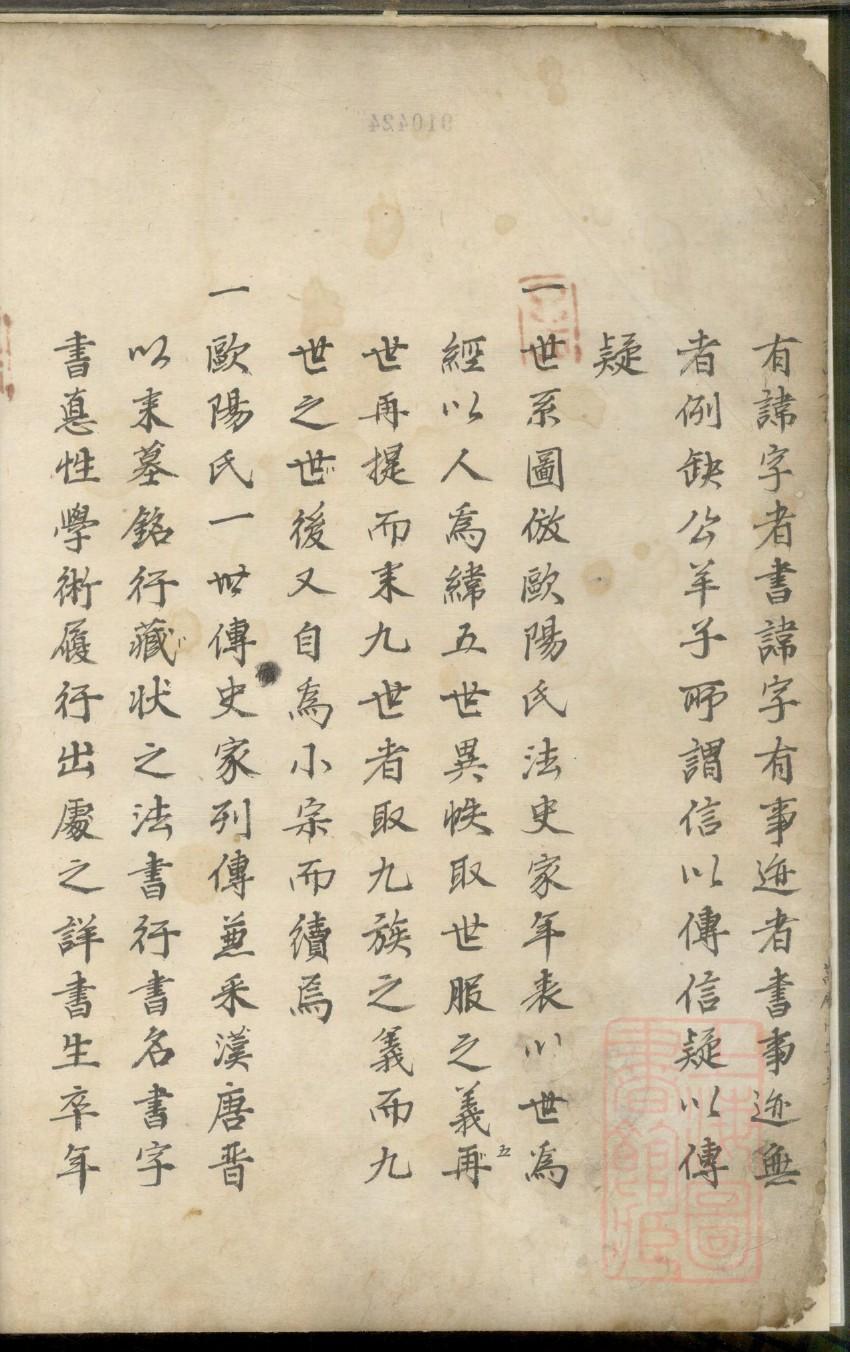 有諱字者書諱字有事迹者書事迹無
者例缺公羊子所謂信以傳信疑以傳
疑
一世系圖倣歐陽氏法史家年表以世為
經以人為緯五世異帙取世服之義再
五
世再提而末九世者取九族之義而九
世之世後又自為小宗而續焉
一歐陽氏一世傳史家列傳兼采漢唐晋
以来墓銘行藏状之法書行書名書字
書真性學術履行出處之詳書生卒年
910424